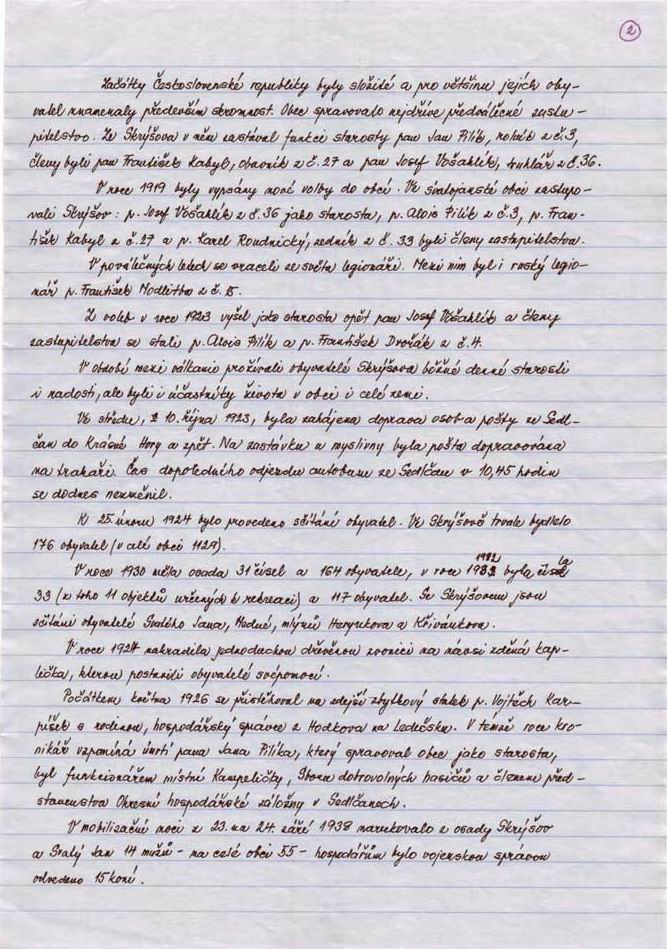 2
Začátky Československé republiky byly složité a pro většinu jejích oby-
vatel znamenaly především skromnost. Obce spravovalo nejdříve předválečné zastu-
pitelstvo. Ze Skrýšova v něm zastával funkci starosty pan Jan Pilík, rolník z č.3,
členy byli pan František Kabyl, obuvník z č.27 a pan Josef Vošahlík, truhlář z č.36.
V roce 1919 byly vypsány nové volby do obcí. Ve svatojánské obci zastupo-
vali Skrýšov: p. Josef Vošahlík z č.36 jako starosta, p. Alois Pilík z č.3, p. Fran-
tišek Kabyl z č.27 a p. Karel Roudnický, zedník z č. 33 byli členy zastupitelstva.
V poválečných letech se vraceli ze světa legionáři. Mezi nim byl i ruský legio-
nář p. František Modlitba z č. 15.
Z voleb v roce 1923 vyšel jako starosta opět pan Josef Vošahlík a členy
zastupitelstva se stali p. Alois Pilík a p. František Dvořák z č.4.
V období mezi válkami prožívali obyvatelé Skrýšova běžné denní starosti
i radosti, ale byli i účastníky života v obci i celé zemi.
Ve středu, 10. října 1923, byla zahájena doprava osob a pošty ze Sedl-
čan do Krásné Hory a zpět. Na zastávku u myslivny byla pošta dopravována
na trakaři. Čas dopoledního odjezdu autobusu ze Sedlčan v 10,45 hodin
se dodnes nezměnil.
K 25. únoru 1924 bylo provedeno sčítání obyvatel. Ve Skrýšově trvale bydlelo
176 obyvatel (v celé obci 1129).
V roce 1930 měla osada 31 čísel a 164 obyvatele, v roce 1982 byla čísla
33 (z toho 11 objektů určených k rekreaci) a 117 obyvatel. Se Skrýšovem jsou
sčítáni obyvatelé Svatého Jana, Hodné, mlýnů Heryukova a Křivánkova.
V roce 1924 nahradila jednoduchou dřevěnou zvonici na návsi zděná kap-
lička, kterou postavili obyvatelé svépomocí.
Počátkem května 1926 se přistěhoval na zdejší zbytkový statek p. Vojtěch Kar-
píšek s rodinou, hospodářský správce z Hodkova na Ledečsku. V témž roce kro-
nikář vzpomíná úmrtí pana Jana Pilíka, který spravoval obec jako starosta,
byl funkcionářem místní Kampeličky, Sboru dobrovolných hasičů a členem před-
stavenstva Okresní hospodářské záložny v Sedlčanech.
V mobilizační noci z 23. na 24. září 1938 narukovalo z osady Skrýšov
a Svatý Jan 14 mužů - na celé obci 55 - hospodářům bylo vojenskou správou
odvedeno 15 koní.